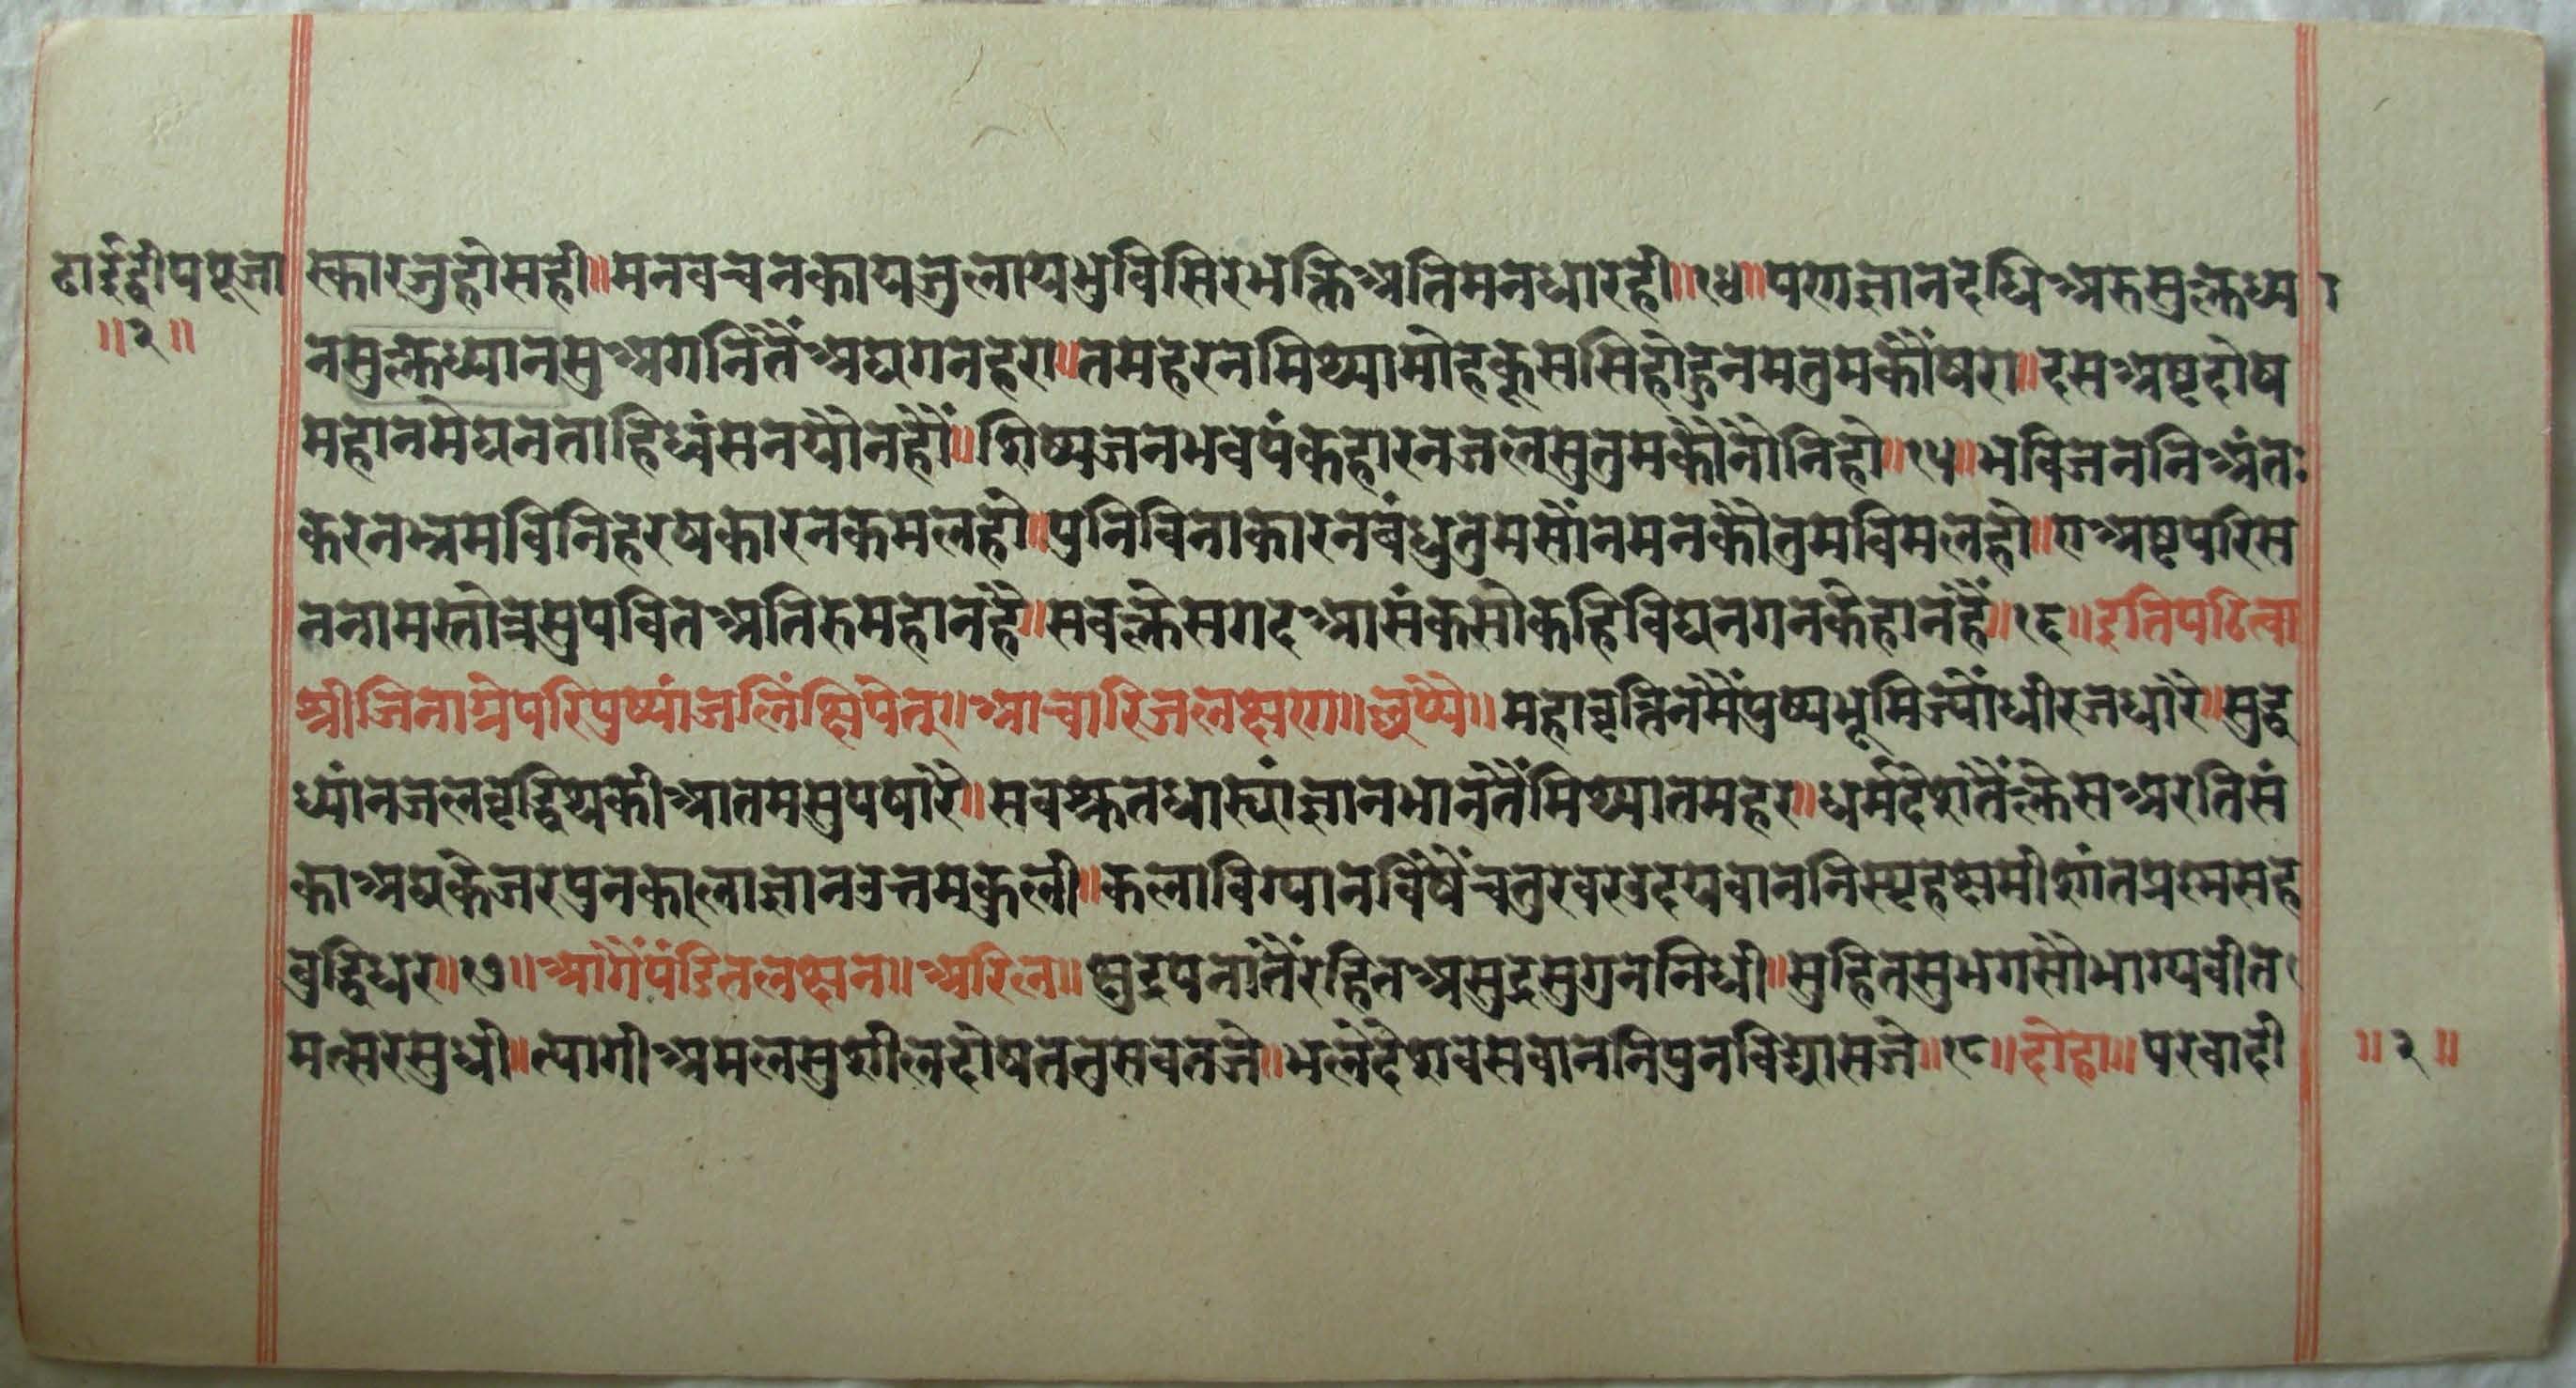 ढाईद्वीपपूजा
॥२॥
स्कारजुहोसही॥मनवचनकायजुलायभुविसिरभक्तिअतिमनधारही॥१४॥परगज्ञानदधिअरुसुक्लध्या
नसुक्लध्यानसुअगनिंतैंअघगनहरा॥तमहरनमिथ्यामोहकूससिहोहुनमतुमकौंषरा॥दसअष्टदोष
महानमेघनताहिध्वंसनयौनहौं॥शिष्यजनभवपंकहारनजलसुतुमकौंनौनिहो॥१५॥भविजननिअंतः
करनभ्रमविनिहरषकारनकमलहो॥पुनिविनाकारनबंधुतुमसौंनमनकौतुमविमलहो॥एअष्टपरिस
ननामस्तोत्रसुपवितअतिरुमहानहै॥सबक्लेसगदआसंकसोकहिविघनगनकेहानहैं॥१६॥इतिपठित्वा
श्रीजिनाग्रेपरिपुष्पांजलिंक्षिपेत्॥आचारिजलक्षण॥छप्पै॥महाव्रत्तिनमैंपुष्पभूमिज्यौंधीरजधारै॥सुद्ध
ध्यांनजलवृद्धिथकीआतमसुपषारै॥सबश्रुतधास्यांज्ञानभानतैंमिथ्यातमहर॥धर्मदेशतैंक्लेसअरतिसं
काअघकैजरपुनकालाज्ञानउत्तमकुली॥कलाविग्यानविषैंचतुरवरउदयवाननिस्पृहक्षमीशांतप्रस्मसह
बुद्धिधर॥१७॥आगैंपंडितलक्षन॥अरिल॥क्षुद्रपनांतैंरहितअसुद्रसुगुननिधी॥सुहितसुभगसौभाग्यवीत
मत्सरसुधी॥त्यागीअमलसुशीलदोषततुसवतजे॥भलेदेशवसवाननिपुनविद्यासजे॥१८॥दोहा॥परवादी
॥२॥